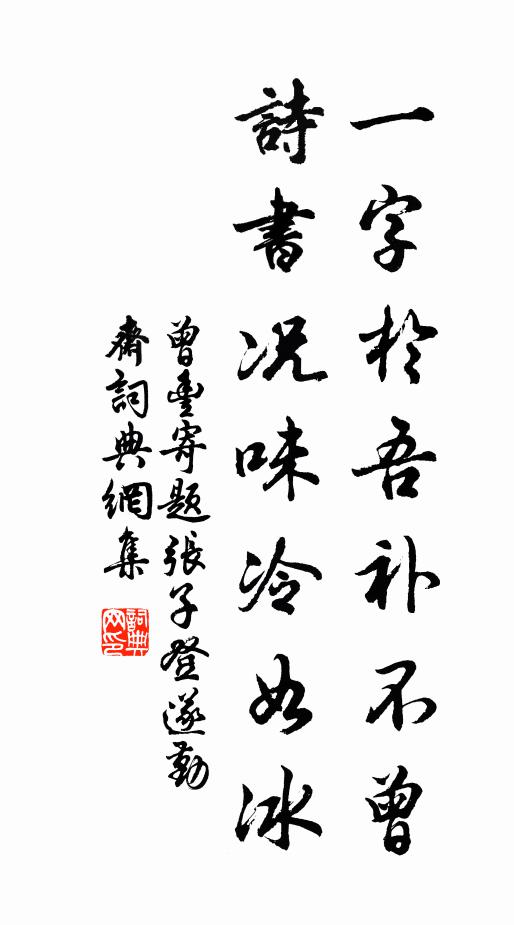 一字於吾补不曾
詩書况味冷如冰
曾豊寄题張子登遂勤
齋詞典網集
詞典網印